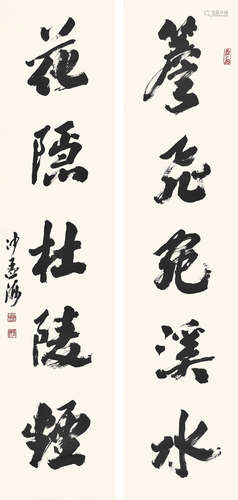 簷飛宛溪水
花隱杜陵煙
沙孟海